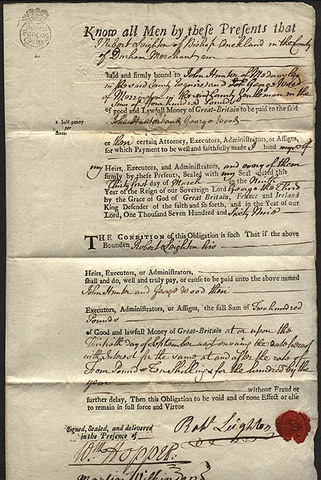 Know all Men by these Presents that
I Robert Leighton of Bishop Auckland in the County
of Durham Merchant am
held and firmly bound to John Hunter of
in the said County Esquire and George Wood
of Merrington in the said County Gentleman in the
Sum of Four hundred Pounds
of good and lawful Money of Great-Britain to be paid to the said
John Hunter and George Wood
a half penny
or their certain Attorney, Executors, Administrators, or Assigns,
for which Payment to be well and faithfully made I bind myself
my Heirs, Executors, and Administrators, and every of them
firmly by these Presents, Sealed with my Seal dated this
Thirty first day of March in the Ninth
Year of the Reign of our Sovereign Lord George the Third
by the Grace of God of Great Britain, France and Ireland
King Defender of the faith and so forth, and in the Year of our
Lord, One Thousand Seven Hundred and Sixty Nine
THE CONDITION of this Obligation is such That if the above
Bounden Robert Leighton his
Heirs, Executors, or Administrators,
shall and do, well and truly pay, or cause to be paid unto the above named
John Hunter and George Wood their
Executors, Administrators, or Assigns, the full Sum of Two hundred
Pounds
of Good and lawful Money of Great-Britain at or upon the
Thirtieth day of September next ensuing the date hereof
with Interest for the same at and after the rate of
Four Pounds Ten Shillings for the hundred by the
Year
without Fraud or
further delay, Then this Obligation to be void and of none Effect or else
to remain in full force and Virtue
Signed, Sealed, and delivered
in the Presence of
Robt Leighton
Wm Hopper
Martin Wilkinson